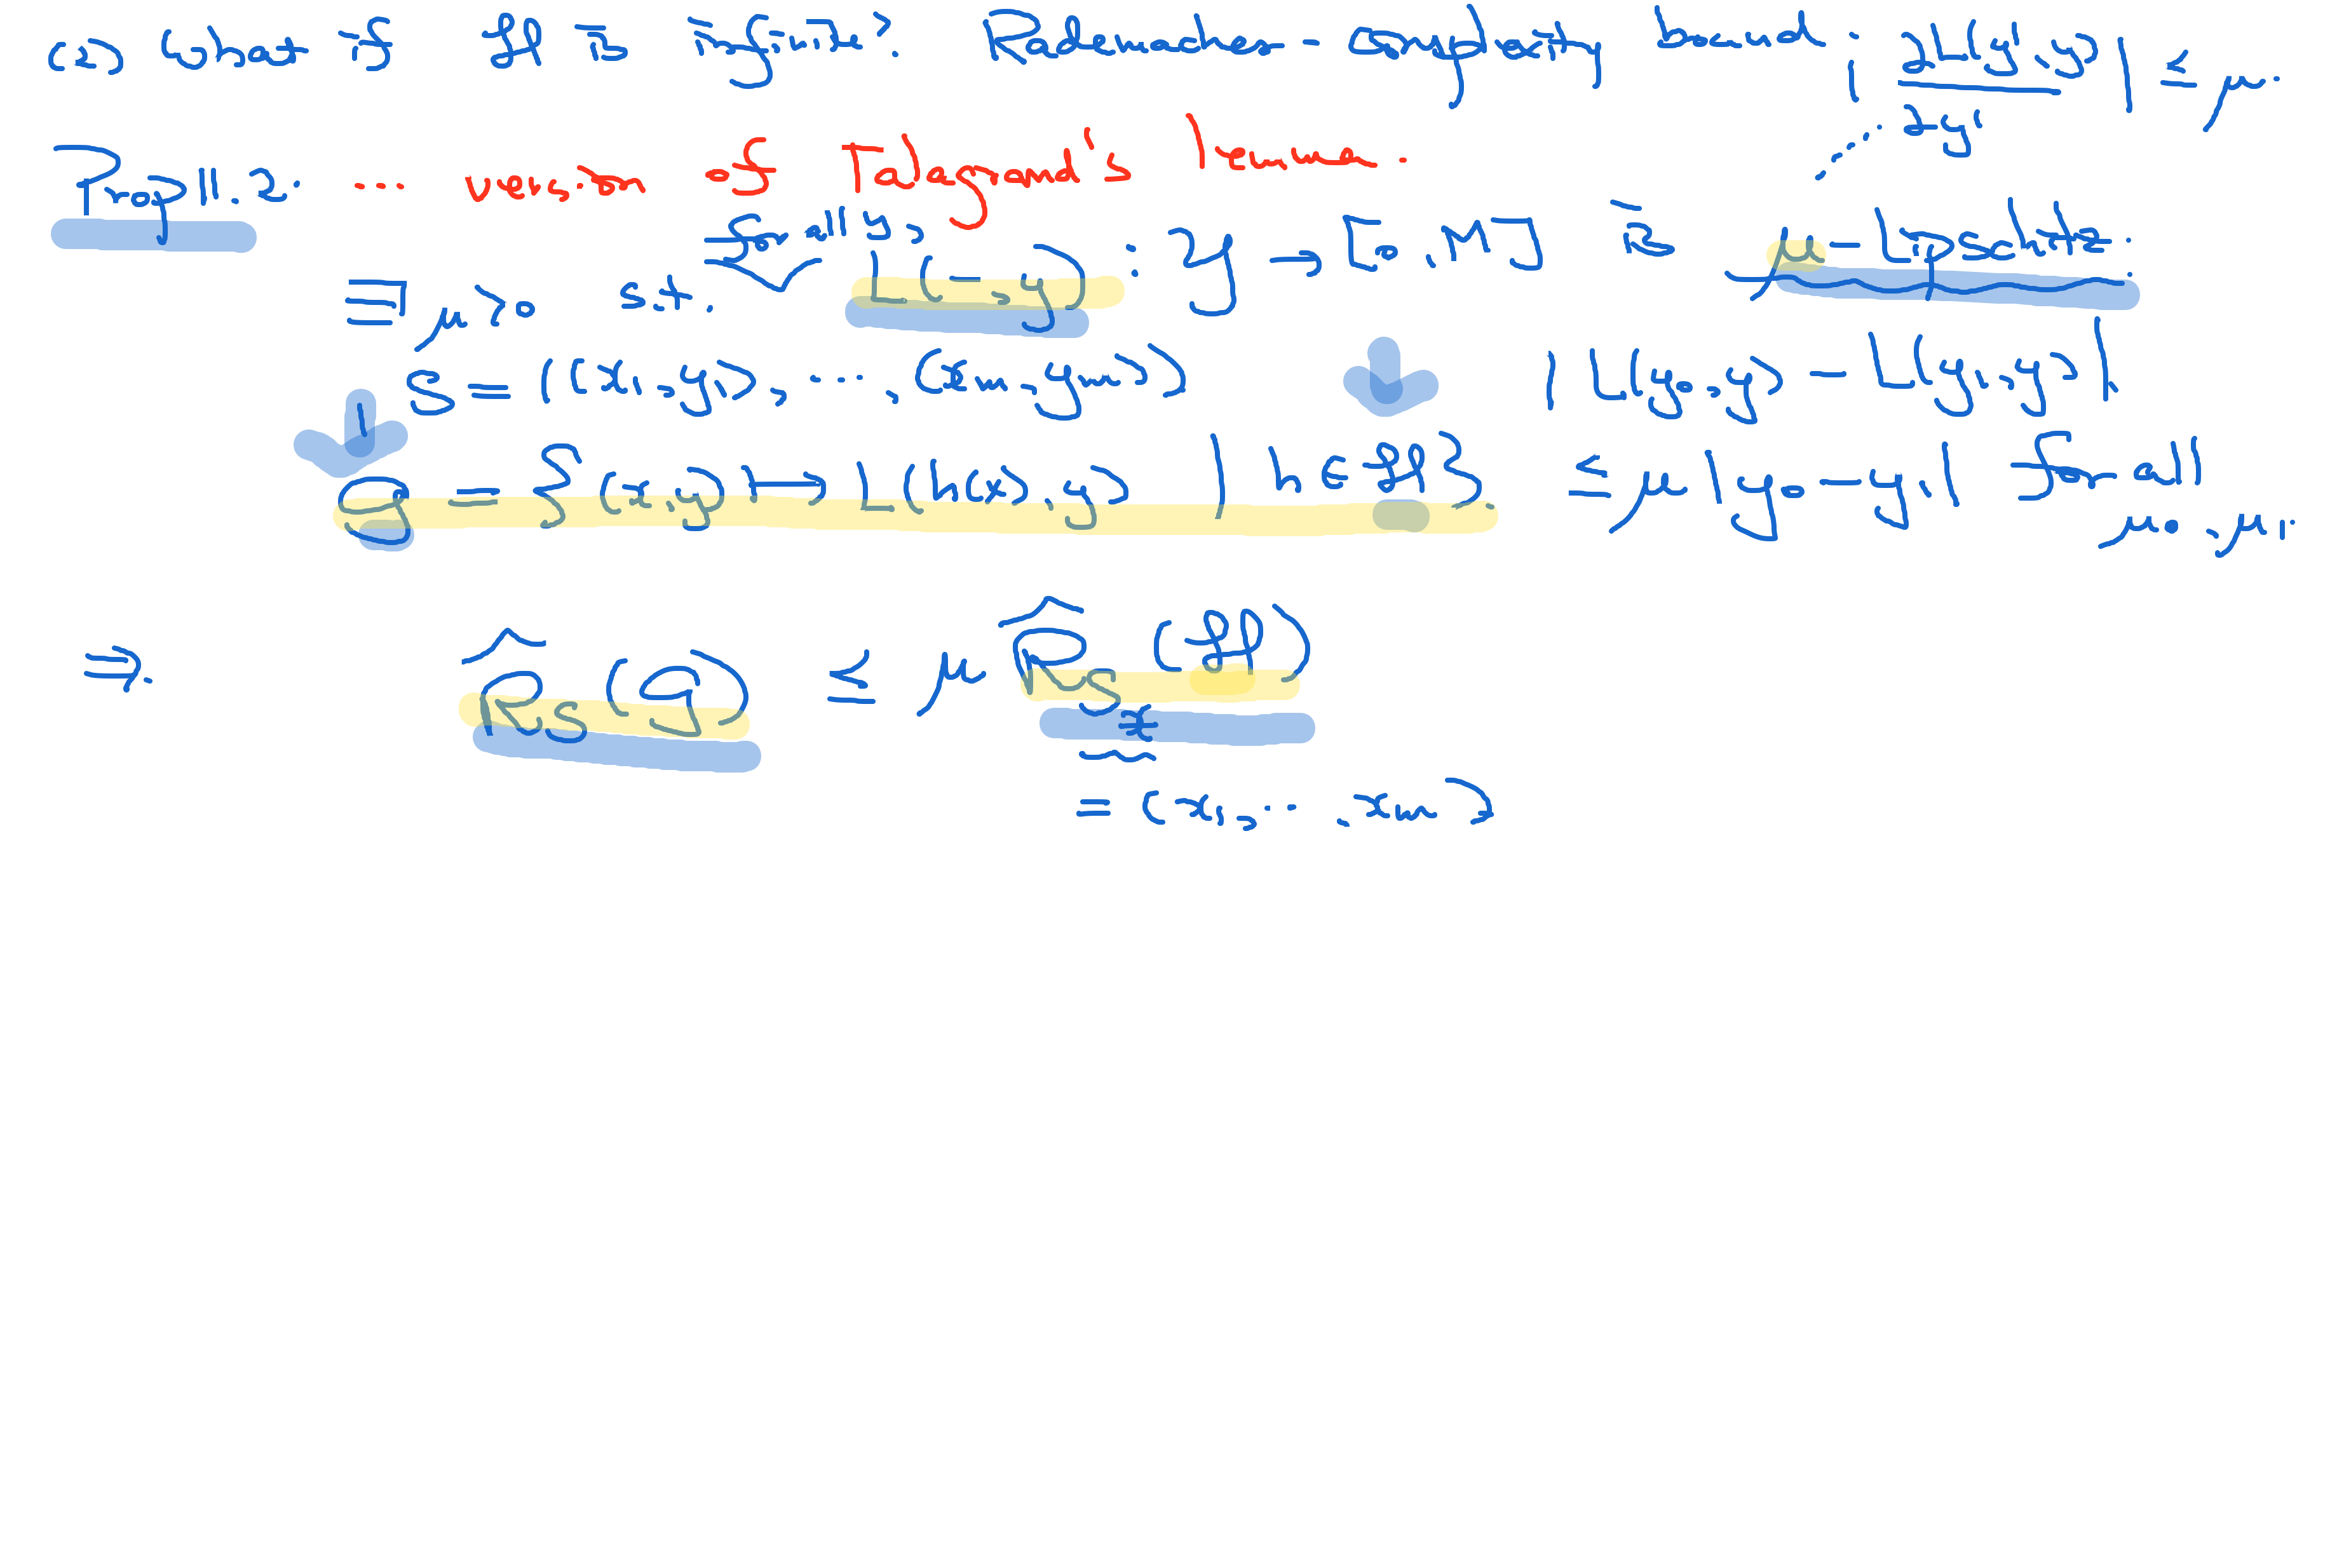 (2) What if ℋ is infinite? Rademacher - complexity bound. | ∂L(y', y) / ∂y' | ≤ μ.
Prop 11.2. ... version of Talagrand's lemma.
for all y,
∃ μ>0 s.t. L(-, y) : Y → [0, M] is μ-Lipschitz.
S = ((x1, y1), ..., (xm, ym)) | L(y0, y) - L(y1, y) |
G = { (x, y) ↦ L(h(x), y) | h ∈ ℋ }. ≤ μ | y0 - y1 | for all
⇒. R̂S(G) ≤ μ R̂Sx(ℋ)
= (x1, ..., xm)